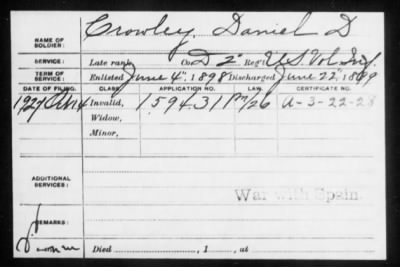 NAME OF SOLDIER: Crowley, Daniel D
SERVICE: Late rank, Co. D 2" Reg't U S Vol. Inf.
TERM OF SERVICE: Enlisted June 4", 1898 Discharged June 22", 1899
DATE OF FILING. CLASS. APPLICATION NO. LAW. CERTIFICATE NO.
1927 Invalid, 159431 A-3-22-28
Widow,
Minor,
ADDITIONAL SERVICES:
War with Spain.
REMARKS:
Died , 1 , at